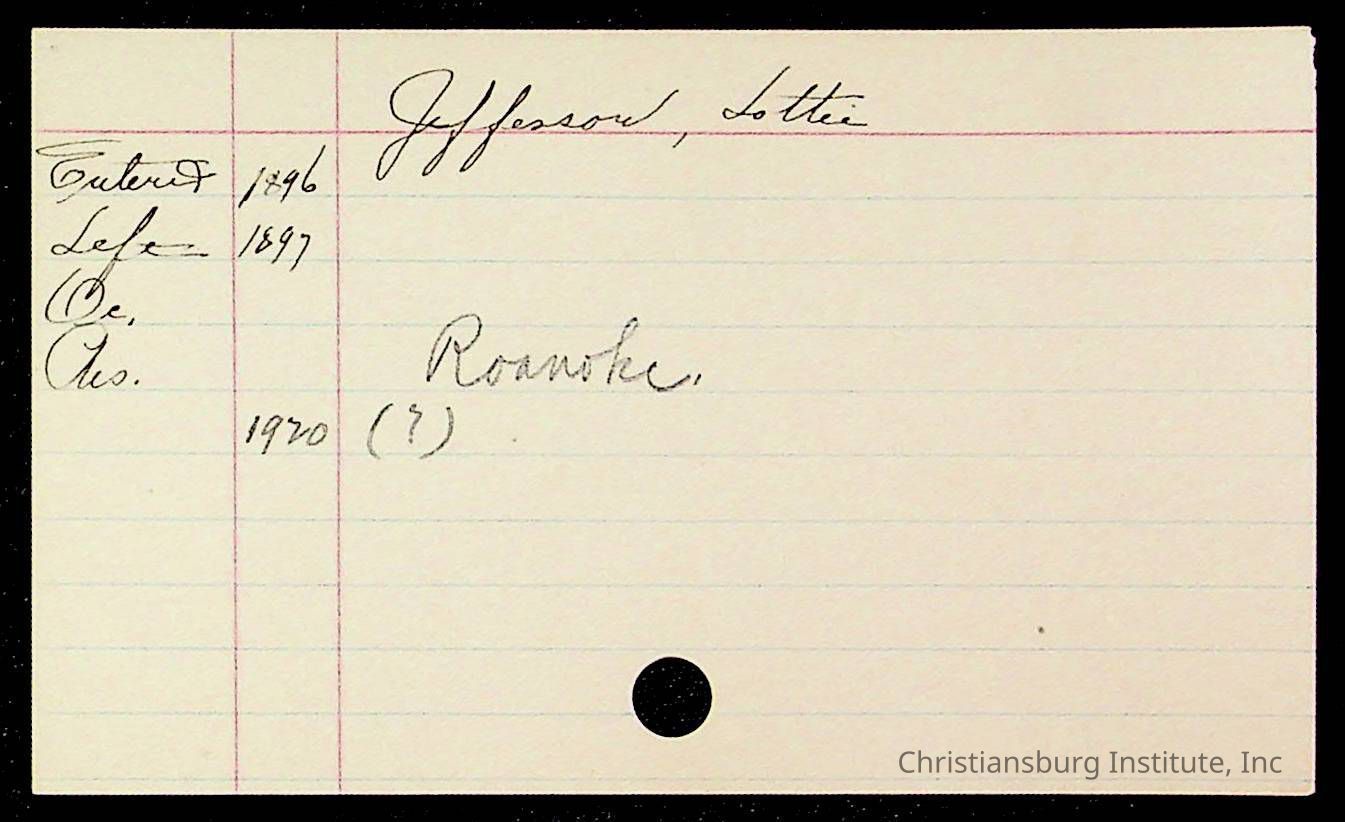 Jefferson, Lottie
Entered 1896
Left 1897
Oc.
Res. Roanoke.
1920 (?)
Christiansburg Institute, Inc